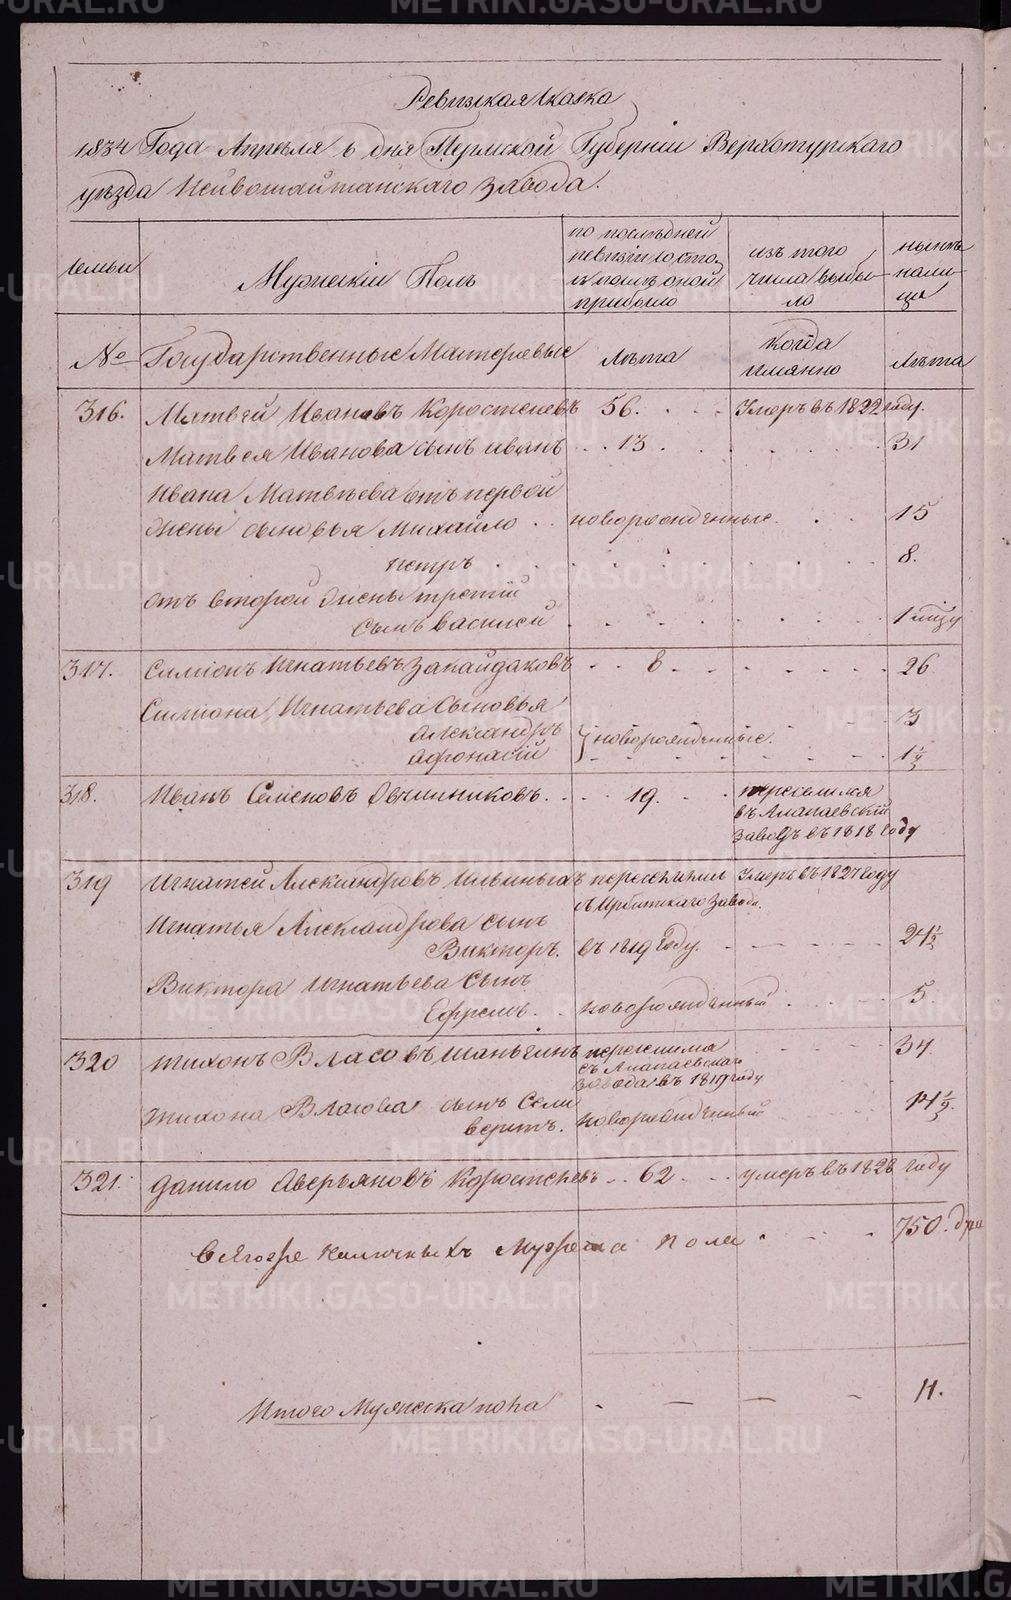 Ревизская сказка
1834 Года Апреля 6 дня Пермской Губернiи Верхотурскаго
уѣзда Нейвошайтанскаго завода.
семьи
Мужескiй Полъ
по послѣдней
ревизiи состо-
и послѣ оной
прибыло
изъ того
числа выбы-
ло
нынѣ
на ли-
цо
№
Государственные Мастеровые
Лѣта
когда
имянно
лѣта
316. Матвей Ивановъ Коростелевъ 56. Умеръ въ 1822 году.
Матвея Иванова сынъ иванъ 13 31
Ивана Матвѣева отъ первой
жены сыновья Михайло новорожденные. 15
петръ 8.
отъ второй жены третiй
сынъ василей 1
317. Симiонъ Игнатьевъ Запайдаковъ 8 26
Симiона Игнатьева Сыновья
александръ 3
новорожденные.
афонасiй 1
318. Иванъ Семеновъ Овчинниковъ. 19. переселился
въ Алапаевскiй
заводъ въ 1818 году
319 Игнатей Александровъ Ильиныхъ переселили Умеръ въ 1827 году
съ Ирбитскаго Завода.
Игнатья Александрова сынъ
Викторъ. въ 1819 Году. 24½
Виктора Игнатьева Сынъ
Ефремъ новорожденный 5.
320 тихонъ Власовъ Шаньгинъ 34
съ Алапаевскаго
завода въ 1819 году
тихона Власова сынъ Сели
верстъ. новорожденный
321. данило Аверьяновъ Коростелевъ 62 умеръ въ 1828 году
наличныхъ Мужеска пола 750.
Итого Мужеска пола 11.
METRIKI.GASO-URAL.RU